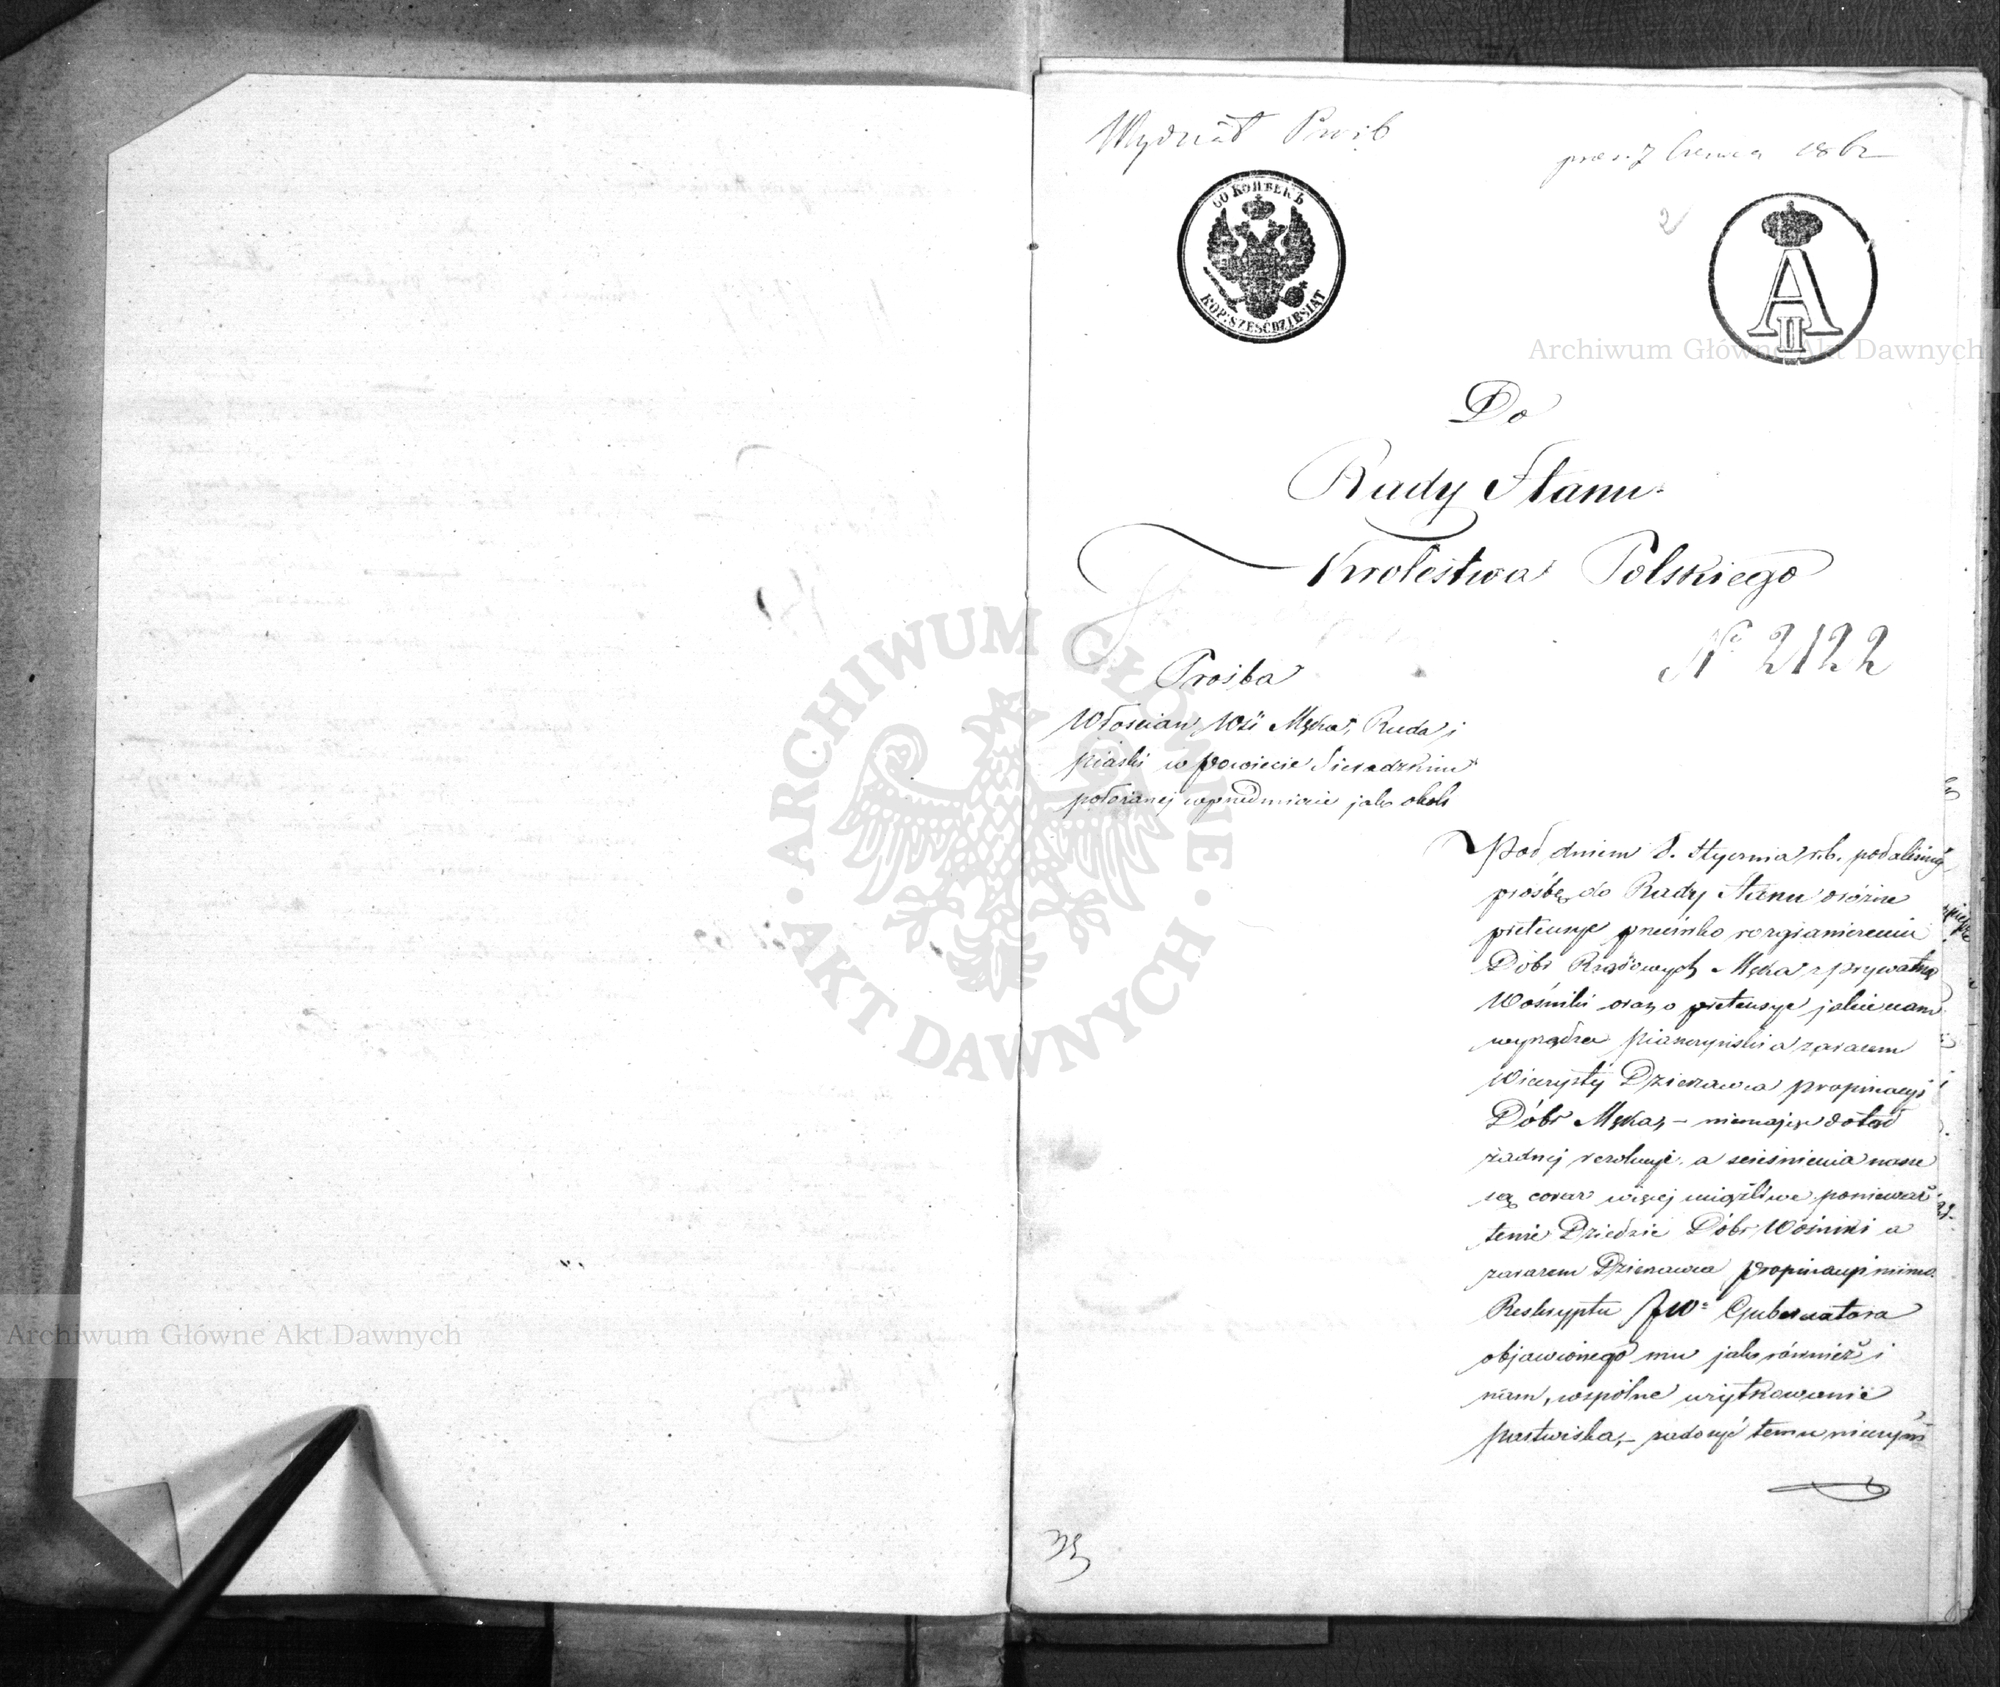 Wydział Proźb
prez. 7 Czerwca 1862
60 КОПѢЕКЪ
KOP: SZEŚĆDZIESIĄT
2
A II
Do
Rady Stanu
Krolestwa Polskiego
No 2122
Prośba
Włościan Wsi Męka, Ruda i
Piaski w Powiecie Sieradzkim
położonej w przedmiocie jak obok
Pod dniem 8. Stycznia r.b. podaliśmy
prośbę do Rady Stanu o różne
pretensye przeciwko rozgraniczeniu
Dóbr Rządowych Męka z prywatną
Wośniki oraz o pretensye jakie nam
wyrządza Pianczyński a zarazem
Wieczysty Dzierzawca propinacyi
Dóbr Męka, – niemając dotąd
żadnej rezolucyi, a ścieśnienia nasze
są coraz więcej uciążliwe ponieważ
tenże Dziedzic Dóbr Wośniki a
zarazem Dzierzawca propinacyi mimo
Reskryptu JW. Gubernatora
objawionego mu jak również i
nam, wspólne użytkowanie
pastwiska, – zadosyć temu nieczyni
Archiwum Główne Akt Dawnych
Archiwum Główne Akt Dawnych
ARCHIWUM GŁÓWNE AKT DAWNYCH